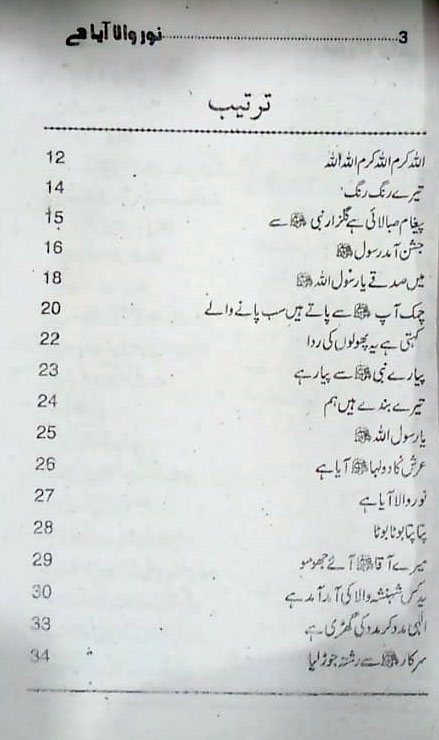 نور والا آیا ہے ........ 3
ترتیب
اللہ کرم اللہ کرم اللہ اللہ 12
تیرے رنگ رنگ 14
پیغام صبا لائی ہے گلزار نبی ﷺ سے 15
جشن آمد رسول ﷺ 16
میں صدقے یا رسول اللہ ﷺ 18
چمک آپ ﷺ سے پاتے ہیں سب پانے والے 20
کہتی ہے یہ پھولوں کی ردا 22
پیارے نبی ﷺ سے پیار ہے 23
تیرے بندے ہیں ہم 24
یا رسول اللہ ﷺ 25
عرش کا دولہا ﷺ آیا ہے 26
نور والا آیا ہے 27
پتا پتا بوٹا بوٹا 28
میرے آقا ﷺ آئے جھومو 29
یہ کس شہنشہ والا کی آمد آمد ہے 30
الٰہی مدد کر مدد کی گھڑی ہے 33
سرکار ﷺ سے رشتہ جوڑ لیا 34